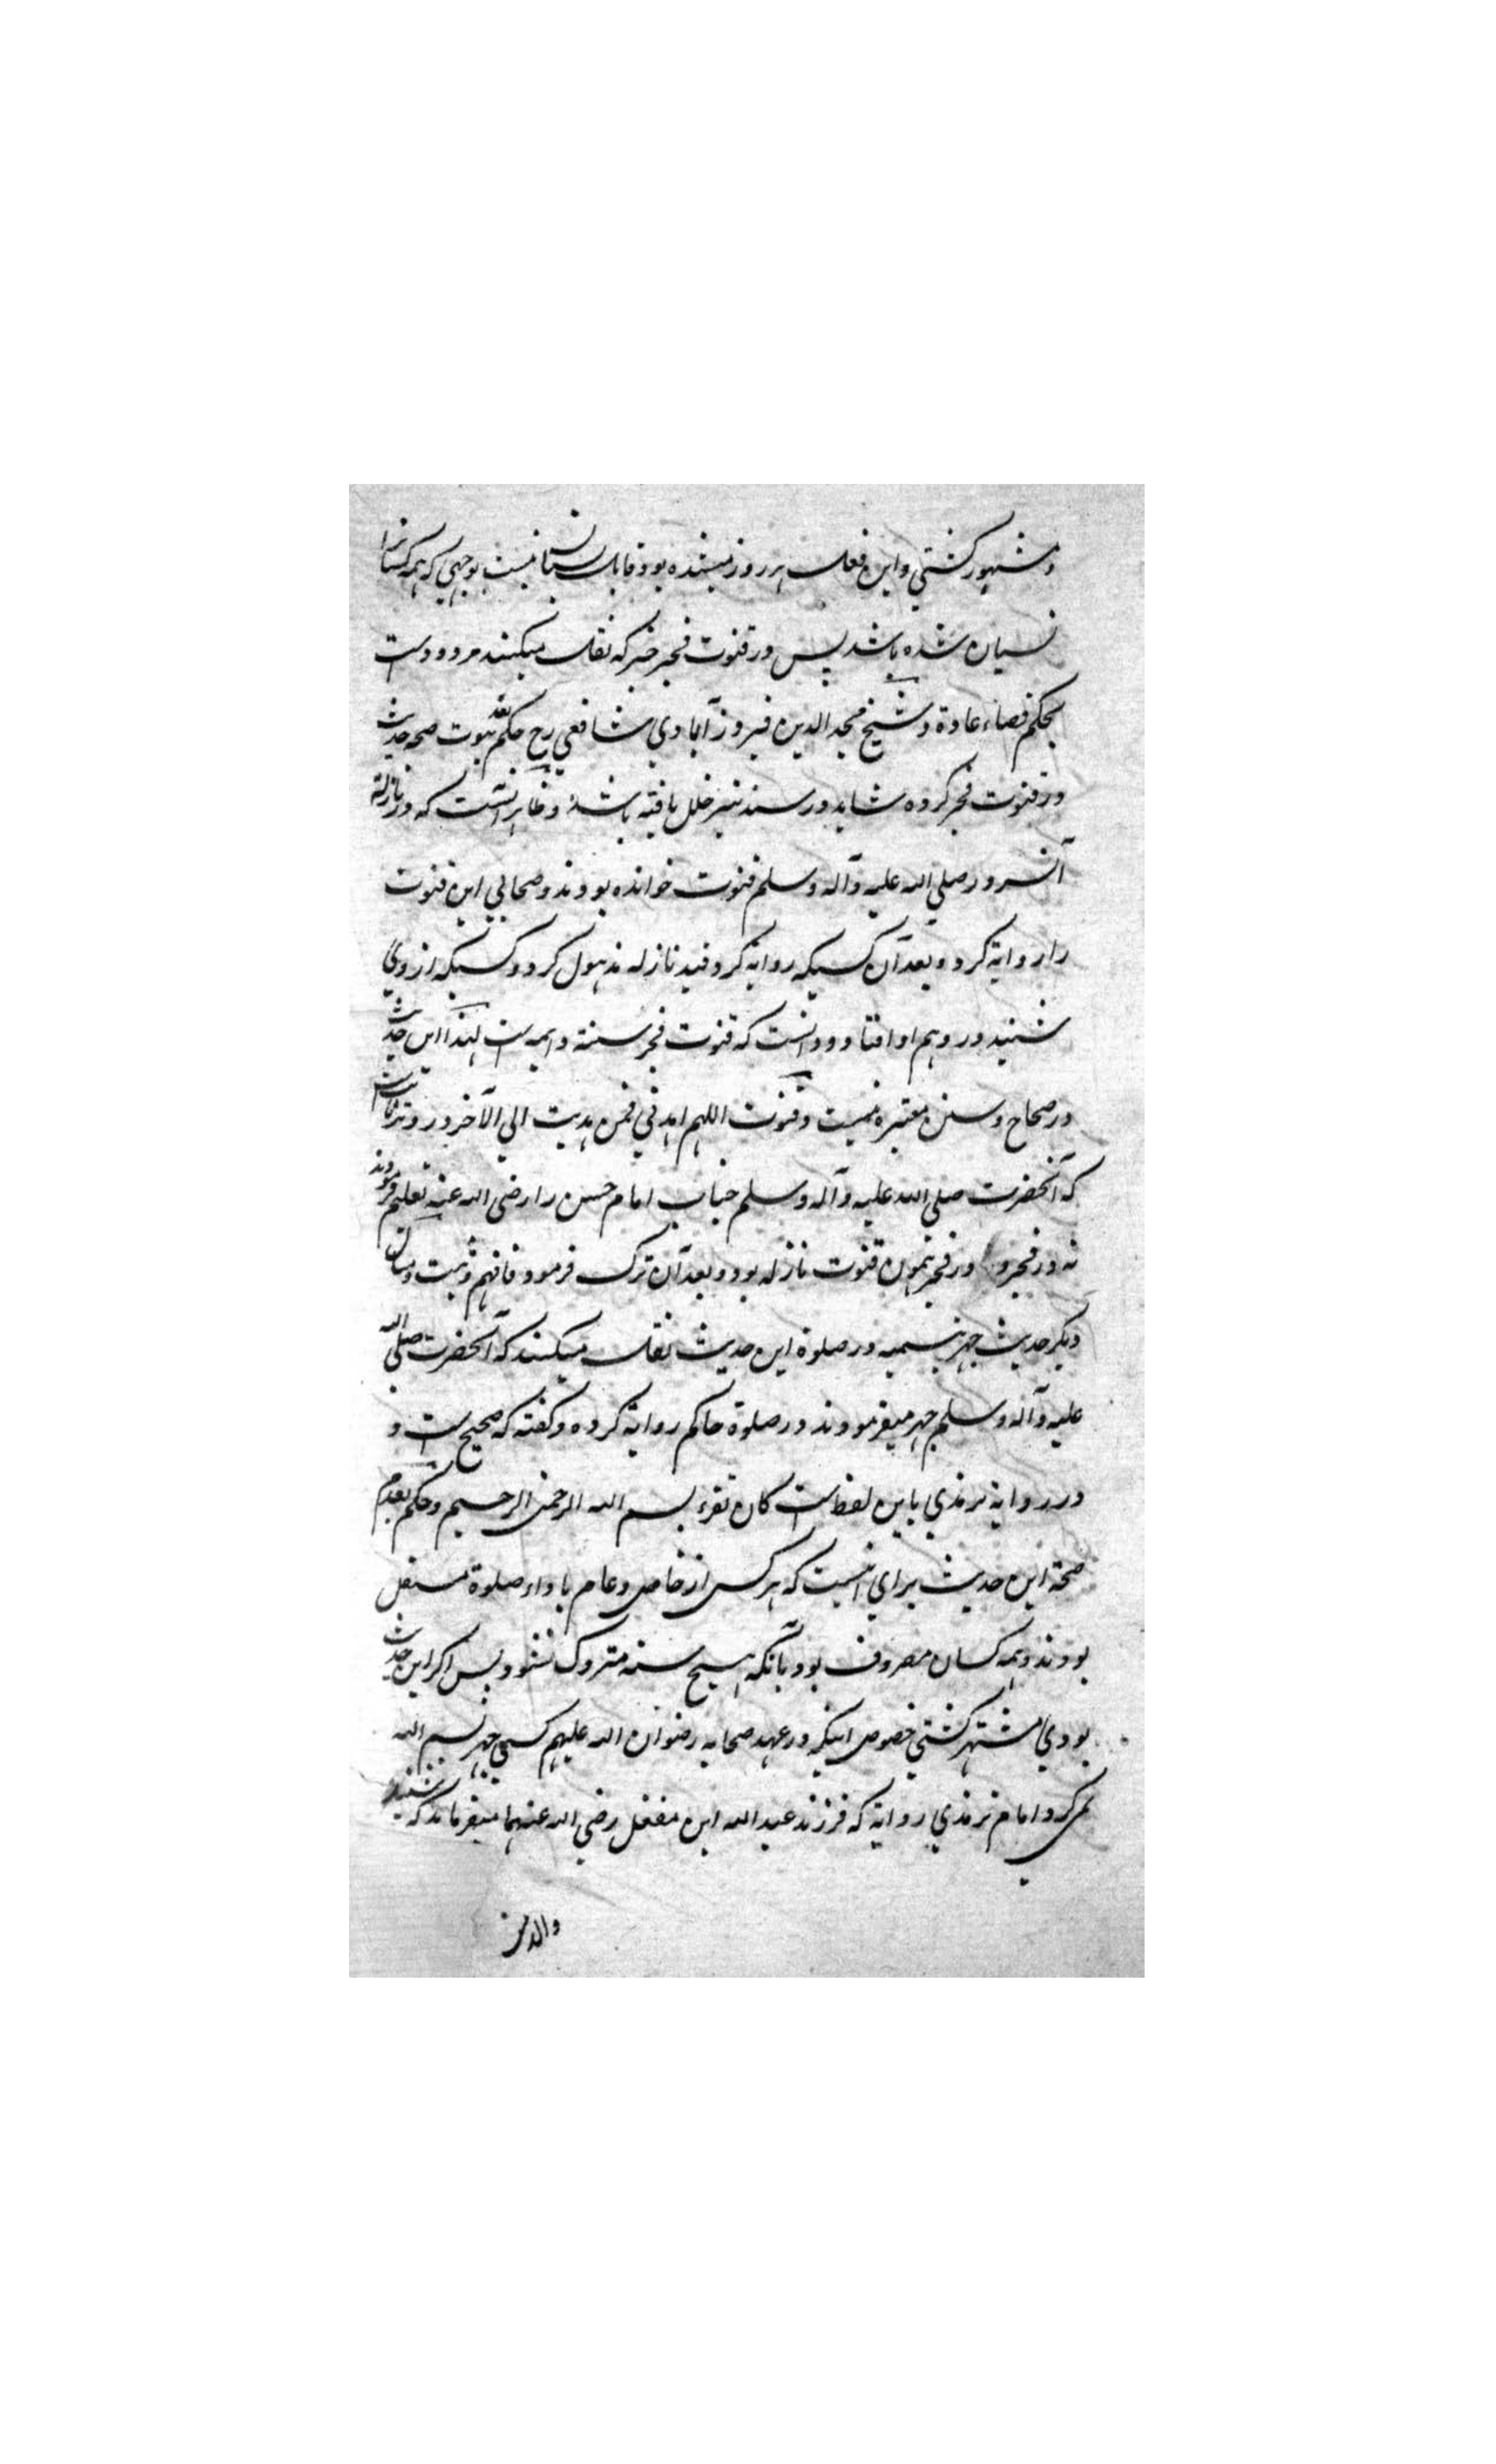 و مشهور کشتي و این فعل هر روز میشده بود و قابل نسیان نیست بوجهي که همه کسانرا
نسیان شده باشد پس در قنوت فجر خبر که نقل میکنند مردودست
بحکم قضاء عادة و شیخ مجد الدین فیروز آبادي شافعي رح حکم بعدم ثبوت صحه حدیث
در قنوت فجر کرده شاید در سند نیز خلل یافته باشد و ظاهر آنست که در نازله
آنسرور صلي الله علیه و آله و سلم قنوت خوانده بودند و صحابي این قنوت
را روایة کرد و بعد آن کسیکه روایة کرد قید نازله مذهول کرد و کسیکه از وي
شنید در وهم او افتاد و دانست که قنوت فجر سنته دایمه است لهذا این حدیث
در صحاح و سنن معتبره نیست و قنوت اللهم اهدني فمن هدیت الي الآخر در وتر ثابت است
که آنحضرت صلي الله علیه و آله و سلم جناب امام حسن را رضي الله عنه تعلیم فرمودند
نه در فجر و در فجر همون قنوت نازله بود و بعد آن ترک فرمود فافهم و ثبت و مثال
دیکر حدیث جهر بتسمیه در صلوة این حدیث نقل میکنند که آنحضرت صلي الله
علیه و آله و سلم جهر میفرمودند در صلوة حاکم روایة کرده و کفته که صحیح است و
در روایة ترمذي باین لفظ است کان تقرء بسم الله الرحمن الرحیم و حکم بعدم
صحة این حدیث براي آنست که هر کس از خاص و عام باداء صلوة مشغل
بودند و همه کسان مصروف بود بآنکه هیچ سنه متروک نشود پس اکر این حدیث
بودي مشتهر کشتي خصوص اینکه در عهد صحابه رضوان الله علیهم کسي جهر بسم الله
نمي کرد امام ترمذي روایة که فرزند عبد الله ابن مغفل رضي الله عنهما میفرماید که شنید
والد من